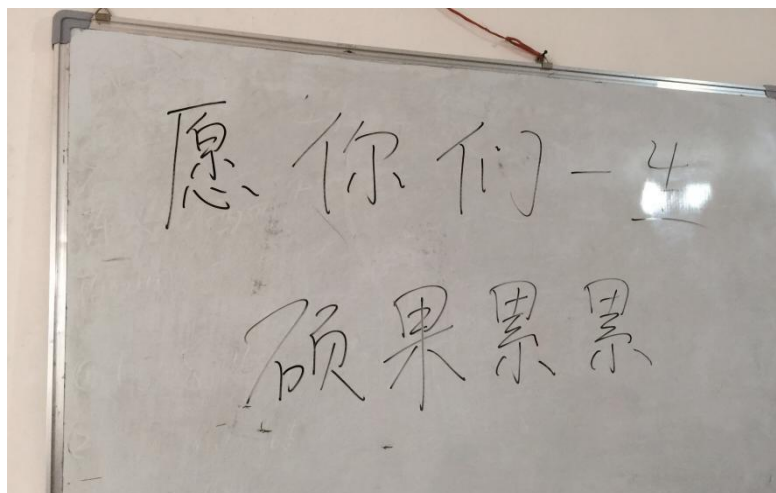 愿你们一生
硕果累累